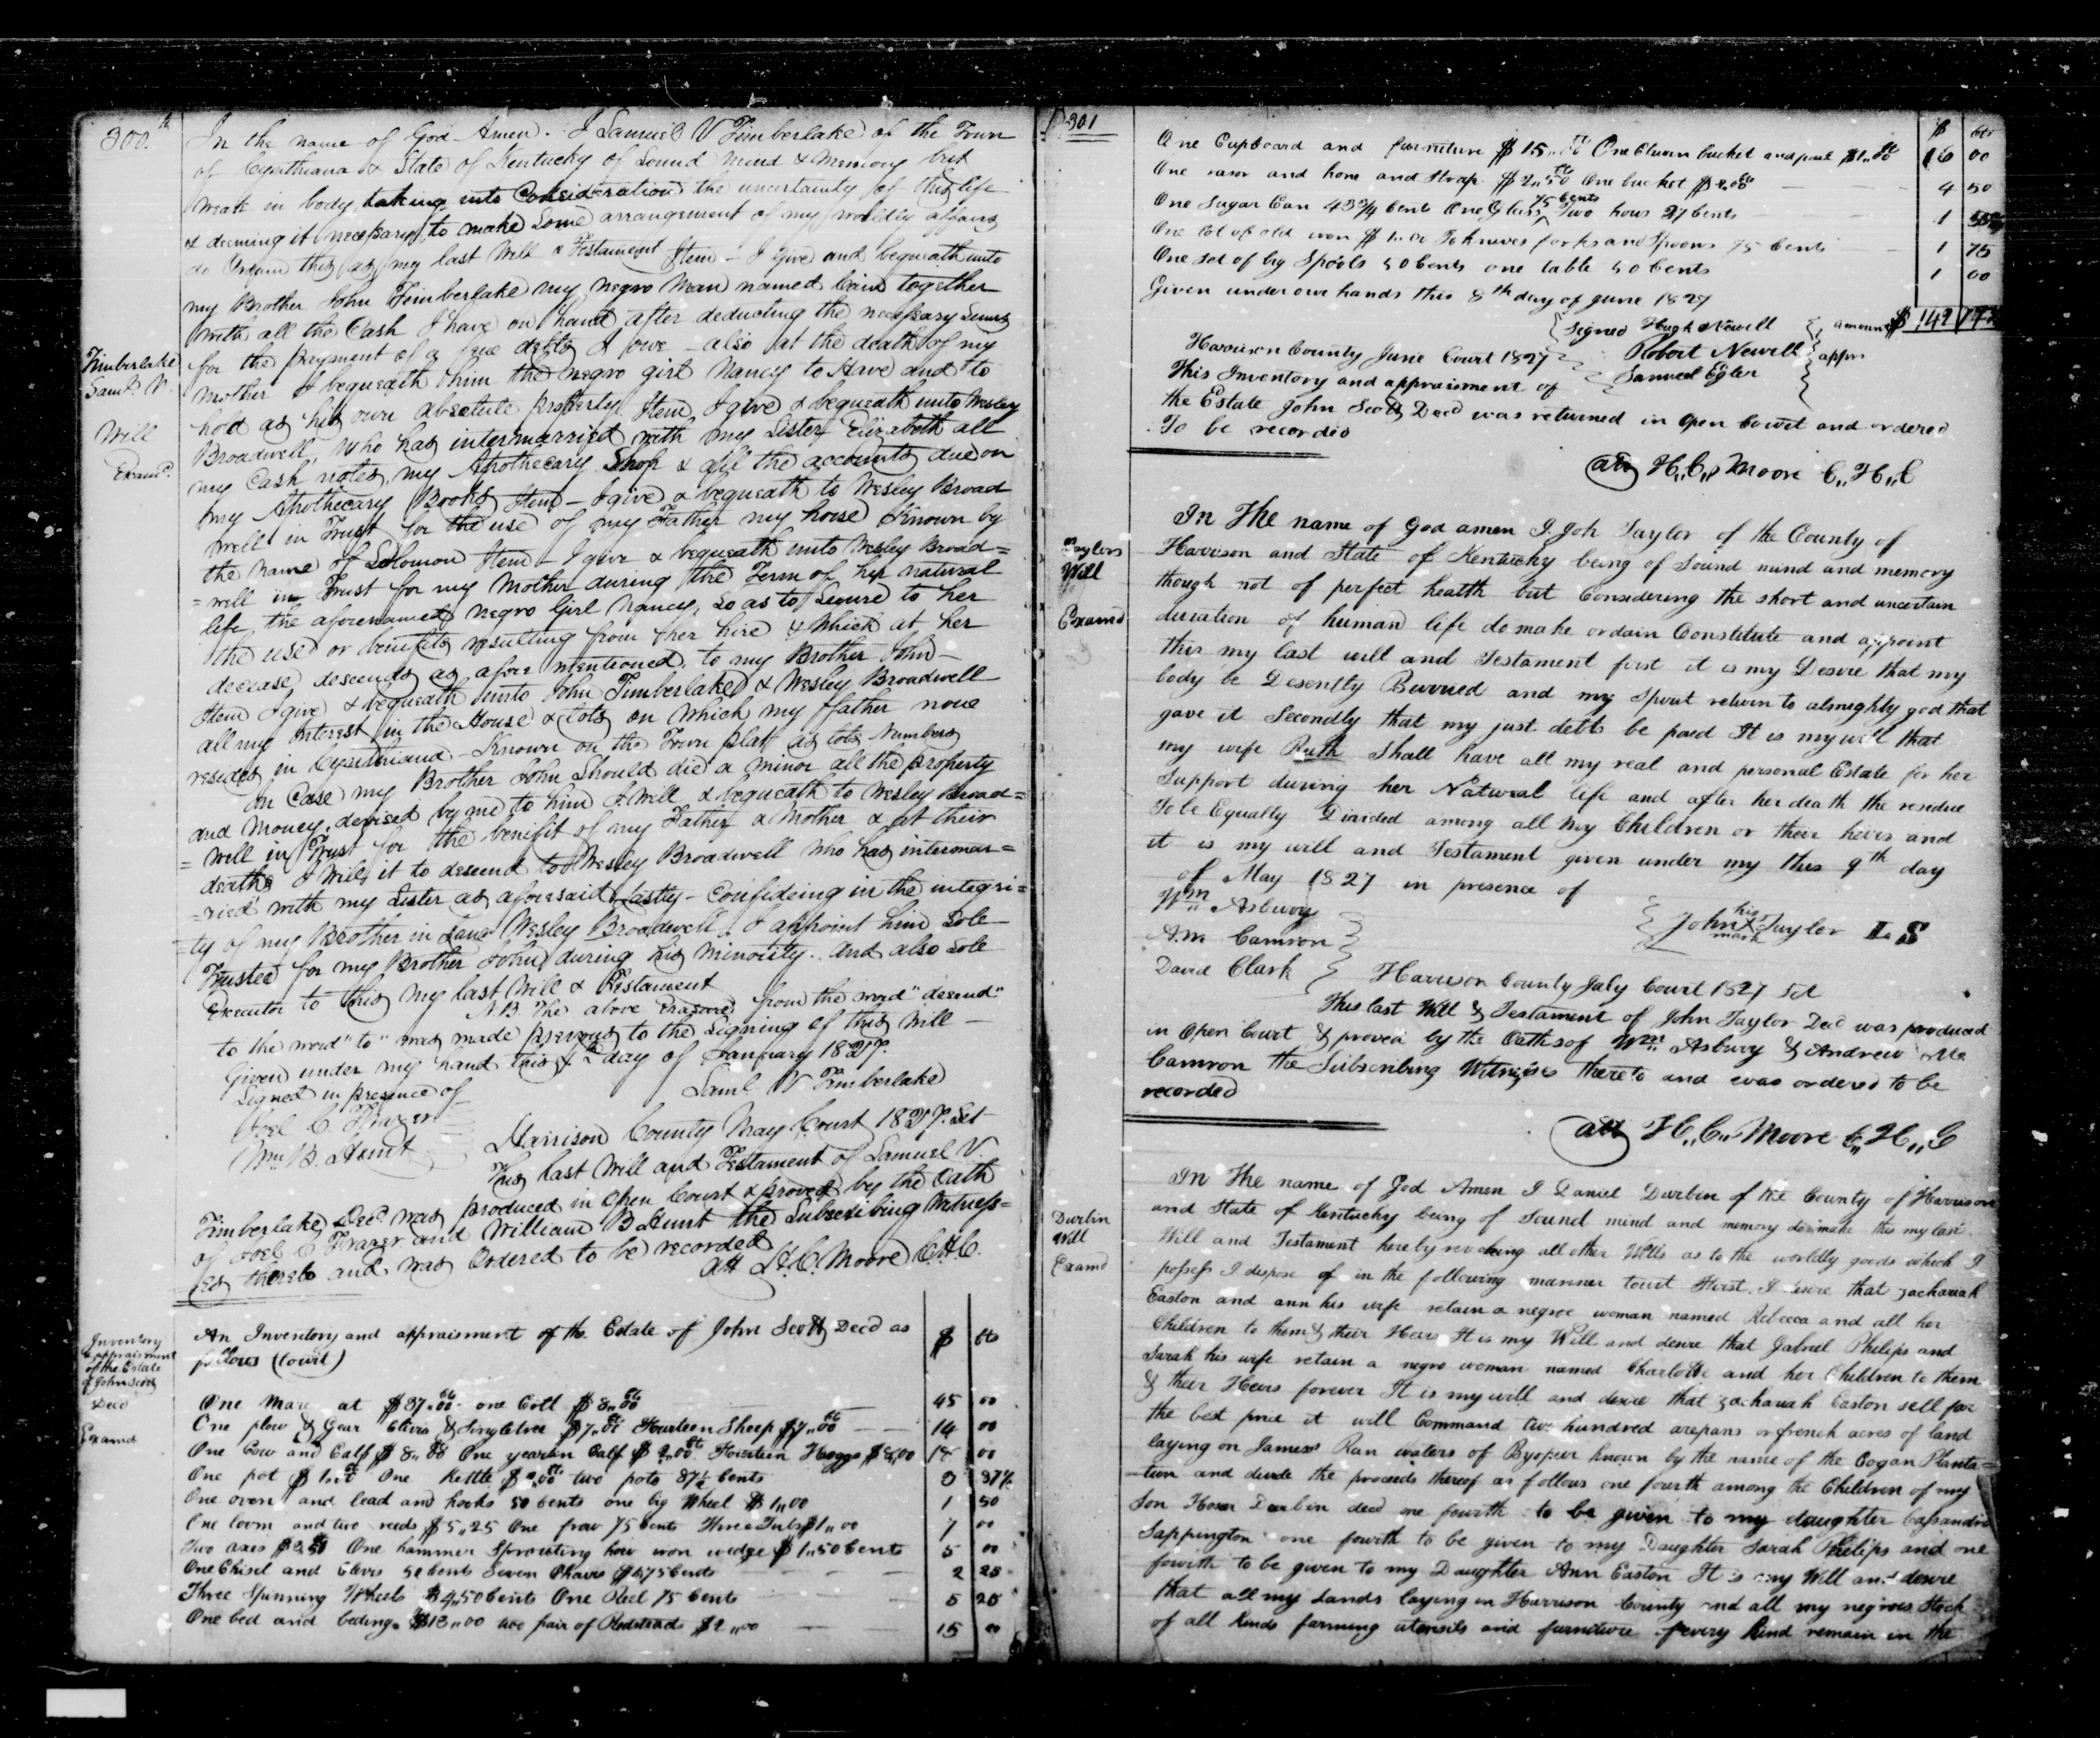 300.th
In the name of God Amen. I Samuel V Timberlake of the Town
of Cynthiana & State of Kentucky of Sound mind & Memory but
weak in body, taking into Consideration the uncertainty of this life
& deeming it necessary to make Some arrangement of my worldly affairs
do Ordain this as my last Will & Testament Item - I give and bequeath unto
my Brother John Timberlake my negro Man named together
with all the Cash I have on hand after deducting the necessary Sums
Timberlake
Saml. V.
Will
Examd.
for the payment of a few debts I owe - also at the death of my
Mother I bequeath him the negro girl Nancy to Have and to
hold as his own absolute property. Item, I give & bequeath unto Wesley
Broadwell, Who has intermarried with my Sister Elizabeth all
my Cash notes, my Apothecary Shop & all the accounts due on
my Apothecary Books Item - I give & bequeath to Wesley Broad
well in Trust for the use of my Father my horse Known by
the name of Solomon Item - I give & bequeath unto Wesley Broad=
=well in Trust for my Mother during the Term of her natural
life the aforenamed negro Girl Nancy, So as to Secure to her
the use or benefits resulting from her hire & Which at her
decease, descends as afore mentioned, to my Brother John -
Item I give & bequeath unto John Timberlake & Wesley Broadwell
all my interest in the House & Lots on Which my ffather now
resides in Cynthiana Known on the Town plat as lots Numbers
In Case my Brother John Should die a minor all the property
and Money, devised by me to him I Will & bequeath to Wesley Broad=
=well in Trust for the benifit of my Father & Mother & at their
deaths I Will it to descend to Wesley Broadwell Who has intermar=
=ried with my Sister as aforesaid Lastly - Confideing in the integri=
=ty of my Brother in Law Wesley Broadwell, I appoint him Sole
Trustee for my Brother John during his minority. And also Sole
Executor to this my last Will & Testament
N.B. The above Erasure from the word "desend"
to the word "to" was made previous to the Signing of this Will -
Given under my hand this day of January 1827.
Signed in presence of
Saml V Timberlake
Joel C. Frazer
Wm. B. Hunt
Harrison County May Court 1827. Sct
This last Will and Testament of Samuel V.
Timberlake Decd was produced in Open Court & proved by the Oath
of Joel C Frazer and William B Hunt the Subscribing Witness=
es thereto and was Ordered to be recorded
Att H.C. Moore C.H.C.
Inventory
& appraisment
of the Estate
of John Scott
Decd
Examd
An Inventory and appraisment of the Estate of John Scott Decd as $ cts
follows (towit)
One Mare at $37,,00 one Colt $8,,00 45 00
One plow & Gear Clivis & Singletree $7,,00 Fourteen Sheep $7,,00 14 00
One Cow and Calf $8,,00 One yearlin Calf $2,,00 Fourteen Hoggs $8,00 18 00
One pot $1,,00 One Kettle two pots 87½ cents 3 87½
One oven and lead and hooks 50 cents one big Wheel $1,,00 1 50
One loom and two reeds $5,,25 One 75 cents Three Tubs $1,,00 7 00
Two axes One hammer Sprouting how iron wedge $1,,50 cents 5 00
One Chisel and Clevis 50 cents Seven Chairs $1,75 cents 2 25
Three Spinning Wheels $4,50 cents One Reel 75 cents 5 25
One bed and beding $13,,00 two pair of Bedsteads $2,,00 15 00
301
$ cts
One Cupboard and furniture $15,,00 One Churn bucket and pail $1,,00 16 00
One rasor and hone and Strap $2,,50 One bucket $2,00 4 50
One Sugar Can 43¾ cents One Glass 75 cents Two hows 37 cents 1
One lot of old iron $1,,00 To knives forks and Spoons 75 Cents 1 75
One set of big Spools 50 Cents one table 50 Cents 1 00
Given under our hands this 8th day of June 1827
Signed Hugh Newell
Robert Newell
Samuel Egler
appr
amount $ 142
Harrison County June Court 1827
This Inventory and appraisment of
the Estate John Scott Decd was returned in Open Court and ordered
To be recorded
att H,,C,, Moore C,,H,,C
Taylors
Will
Examd
In The name of God amen I. Joh Taylor of the County of
Harrison and State of Kentucky being of Sound mind and memory
though not of perfect health but Considering the short and uncertain
duration of human life do make ordain Constitute and appoint
this my last will and Testament first it is my Desire that my
body be Desently Burried and my Spirit return to almighty god that
gave it Secondly that my just debts be paid It is my will that
my wife Ruth Shall have all my real and personal Estate for her
Support during her Natural life and after her death the residue
To be Equally Divided among all my Children or their heirs and
it is my will and Testament given under my this 9th day
of May 1827 in presence of
Wm Asbury
A.m Camron
David Clark
John his X mark Taylor L S
Harrison County July Court 1827 Sct
This last Will & Testament of John Taylor Decd was produced
in Open Court & proved by the Oaths of Wm Asbury & Andrew Mc
Camron the Subscribing Witnesses thereto and was ordered to be
recorded
att H,,C,, Moore C,,H,,C
Durbin
Will
Examd
In The name of God Amen I Daniel Durbin of the County of Harrison
and State of Kentucky being of Sound mind and memory do make this my last
Will and Testament hereby revoking all other Wills as to the worldly goods which I
possess I dispose of in the following manner towit First. I desire that Zachariah
Easton and ann his wife retain a negroe woman named Rebecca and all her
Children to them & their Heirs It is my Will and desire that Gabriel Philips and
Sarah his wife retain a negro woman named Charlotte and her Children to them
& their Heirs forever It is my will and desire that Zachariah Easton sell for
the best price it will Command two hundred arepans or french acres of land
laying on James's Run waters of known by the name of the Cogan Planta=
=tion and devide the proceeds thereof as follows one fourth among the Children of my
Son Hosea Durbin decd one fourth to be given to my daughter Cassandra
Sappington one fourth to be given to my Daughter Sarah Philips and one
fowrth to be given to my Daughter Ann Easton It is my Will and desire
that all my Lands laying in Harrison County and all my negroes Stock
of all Kinds farming utensils and furniture of every kind remain in the